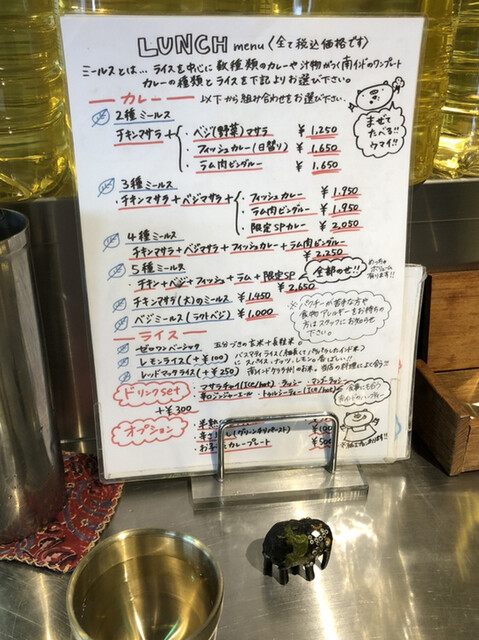 LUNCH menu〈全て税込価格です〉
ミールスとは... ライスを中心に数種類のカレーや汁物がつく南インドのワンプレート
カレーの種類とライスを下記よりお選び下さい。
カレー 以下から組み合わせをお選び下さい。
まぜて
たべる!!
ウマイ!!
2種ミールス
チキンマサラ +
・ベジ(野菜)マサラ ¥1,250
・フィッシュカレー(日替り) ¥1,650
・ラム肉ビンダルー ¥1,650
3種ミールス
・チキンマサラ+ベジマサラ+
・フィッシュカレー ¥1,950
・ラム肉ビンダルー ¥1,950
・限定SPカレー ¥2,050
4種ミールス
チキンマサラ+ベジマサラ+フィッシュカレー+ラム肉ビンダルー
¥2,250
5種ミールス
・チキン+ベジ+フィッシュ+ラム+限定SP
¥2,650
全部のせ!!
めっちゃ
ボリューム
有ります!!
チキンマサラ(大)のミールス ¥1,450
ベジミールス(ラクトベジ) ¥1,000
※パクチーが苦手な方や
食物アレルギーをお持ちの
方はスタッフにお知らせ
下さい。
ライス
ゼロワンベーシック 五分づきの玄米+長粒米。
レモンライス(+¥100) バスマティライス(細長くてパラパラしたインド米)
にスパイス、ナッツ、レモンの香ばしい!!
レッドマッタライス(+¥250) 南インドケララ州のお米。当店の料理によく合う!!
ドリンクset
+¥300
・マサラチャイ(Ice/hot)・ラッシー・マンゴーラッシー
・辛口ジンジャーエール・トゥルシーティー(Ice/hot)
食事にも合う
南インドのハーブティー
オプション
¥100
(グリーンチリペースト)
カレープレート ¥500